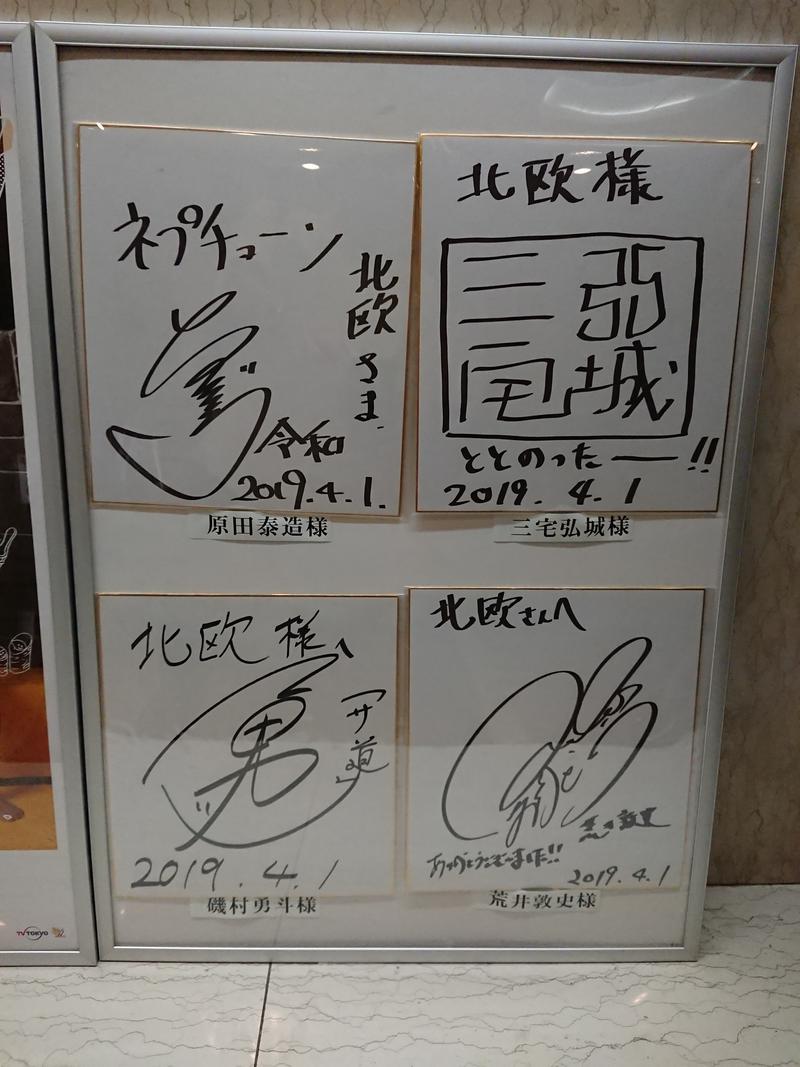 ネプチューン
北欧さま
令和
2019.4.1.
原田泰造様
北欧様
三宅
弘城
ととのったー!!
2019.4.1
三宅弘城様
北欧様へ
勇
「サ道」
2019.4.1
磯村勇斗様
北欧さんへ
荒井敦史
ありがとうございました!!
2019.4.1
荒井敦史様
TV TOKYO